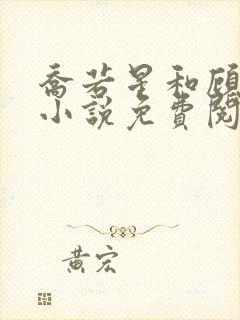 乔若星和顾
小说免费阅
黄宏